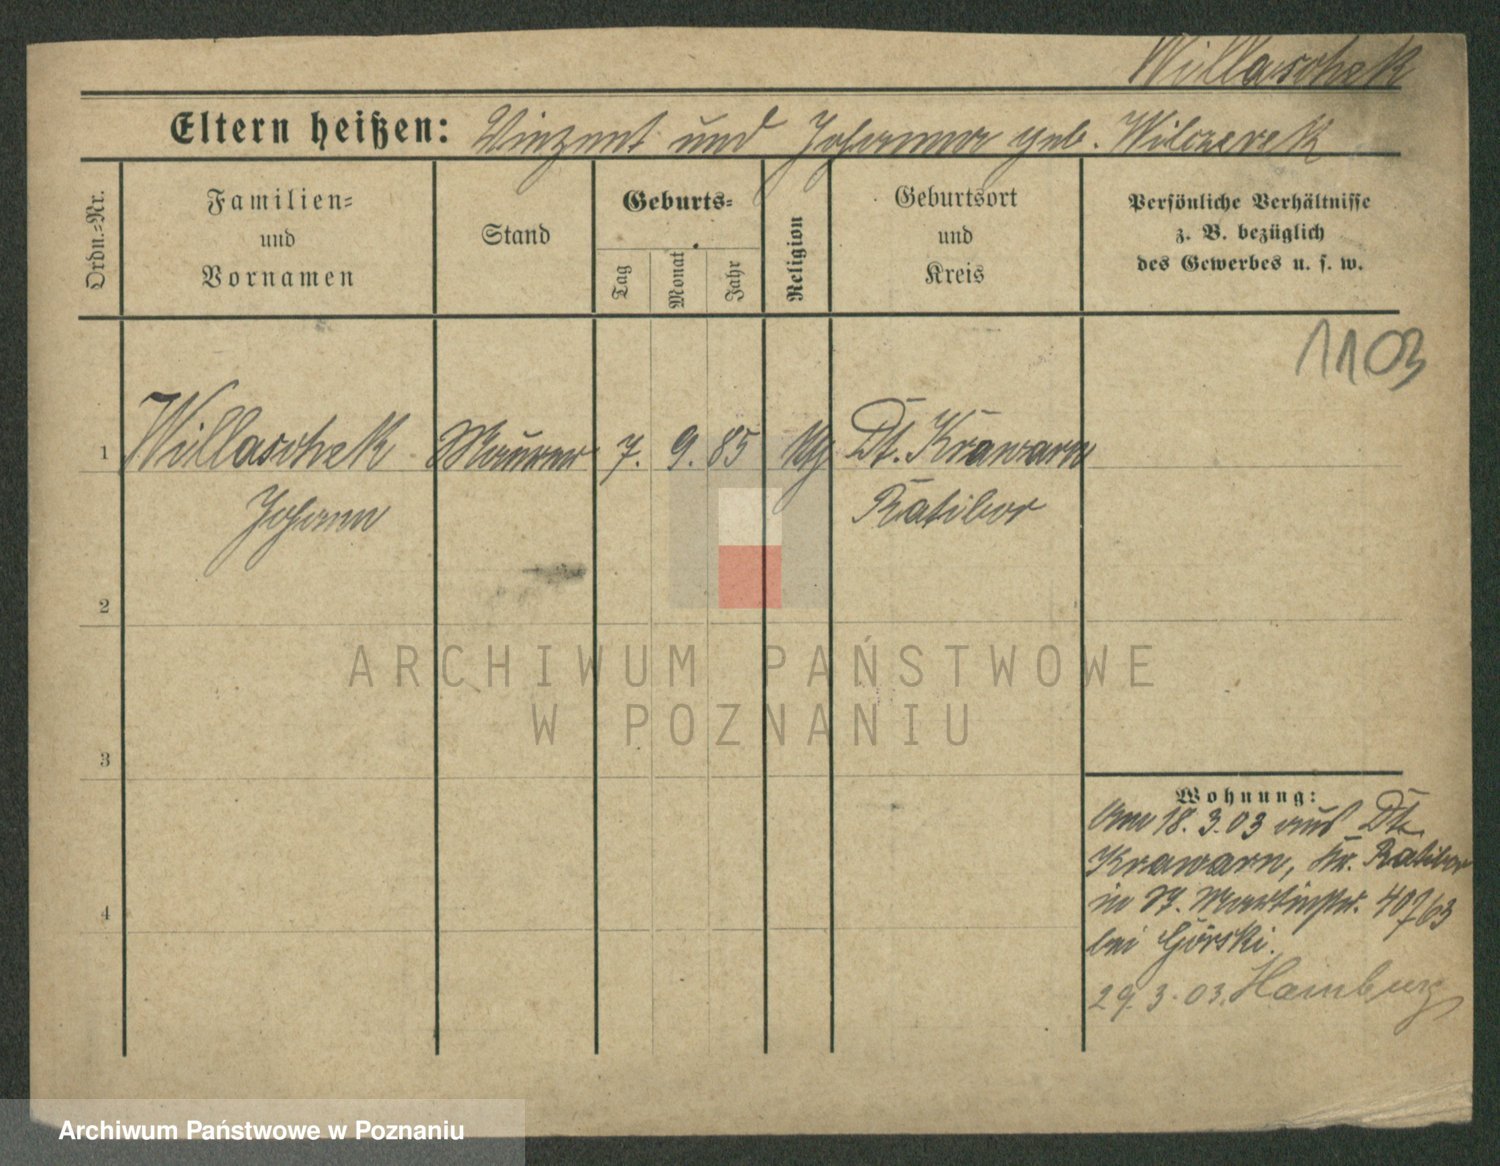 Willaschek
Eltern heißen: Vinzent und Johanna geb. Wilczerek
Ordn.-Nr.
Familien-
und
Vornamen
Stand
Geburts-
Tag
Monat
Jahr
Religion
Geburtsort
und
Kreis
Persönliche Verhältnisse
z. B. bezüglich
des Gewerbes u. s. w.
1103
1 Willaschek Maurer 7. 9. 85 Dt. Krawarn
Johann Ratibor
2
ARCHIWUM PAŃSTWOWE
W POZNANIU
3
Wohnung:
Am 18.3.03 aus Dt.
Krawarn, Kr. Ratibor
in St. Martinstr.
4
bei Górski.
29.3.03. Hamburg
Archiwum Państwowe w Poznaniu